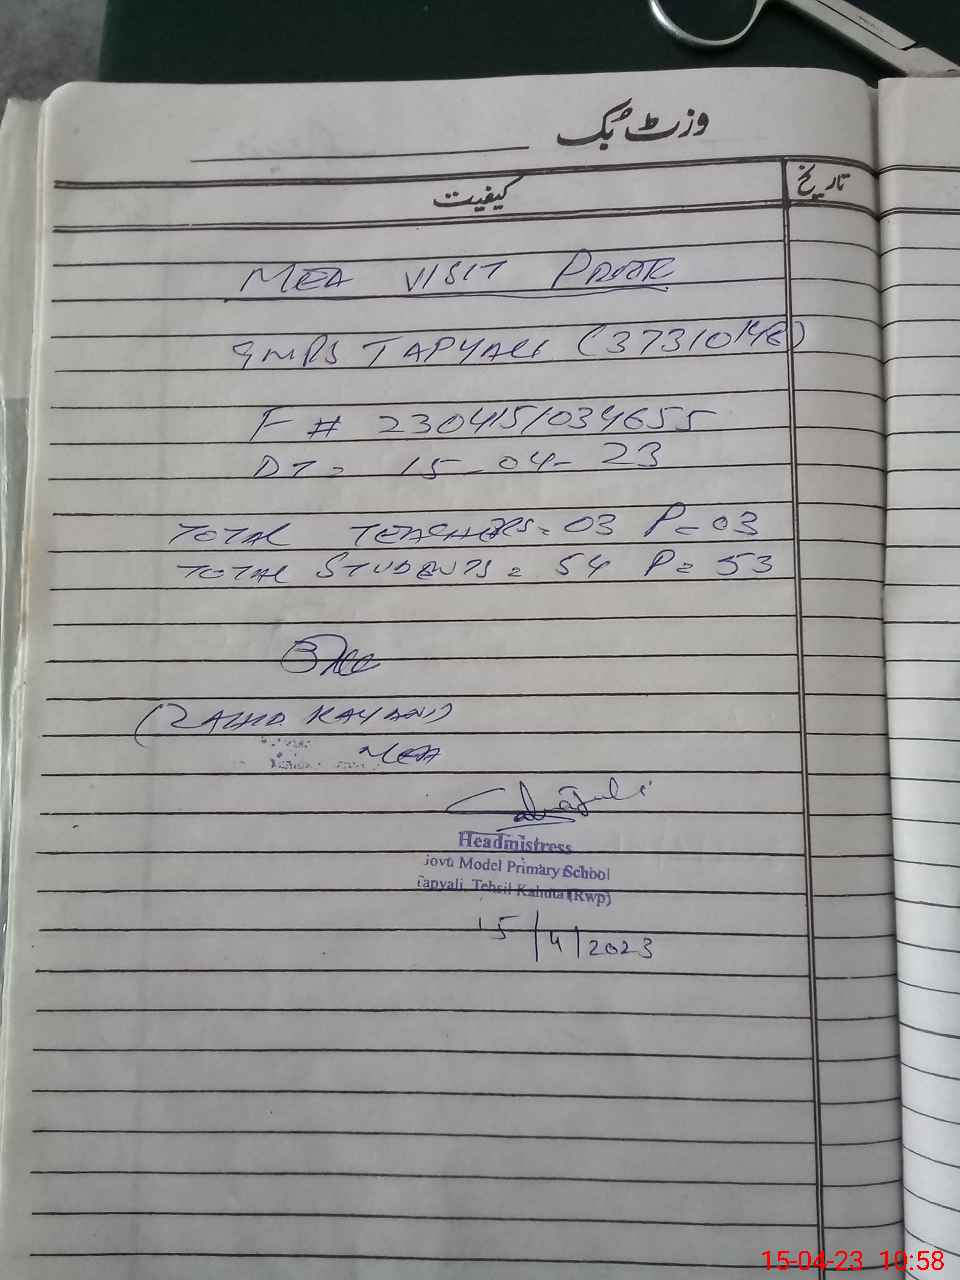 وزٹ بُک
کیفیت تاریخ
MEA VISIT PROOF
GMPS TAPYALI (37310146)
F # 230415/034655
DT = 15-04-23
TOTAL TEACHERS = 03 P = 03
TOTAL STUDENTS = 54 P = 53
(ZAHID KAYANI)
MEA
Headmistress
Govt Model Primary School
Tapyali, Tehsil Kahuta (Rwp)
15/4/2023
15-04-23 10:58